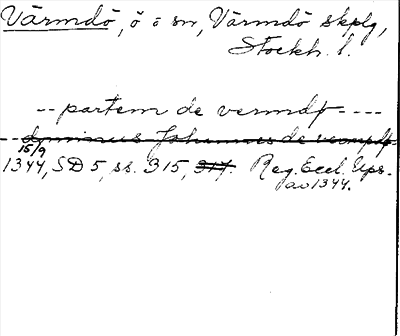 Värmdö, ö o sn, Värmdö skplg,
Stockh. l.
-- partem de vermdø ----
-- dominus Johannes de vermdø
15/9
1344, SD 5, ss. 315, 317. Reg. Eccl. Ups.
av 1344.